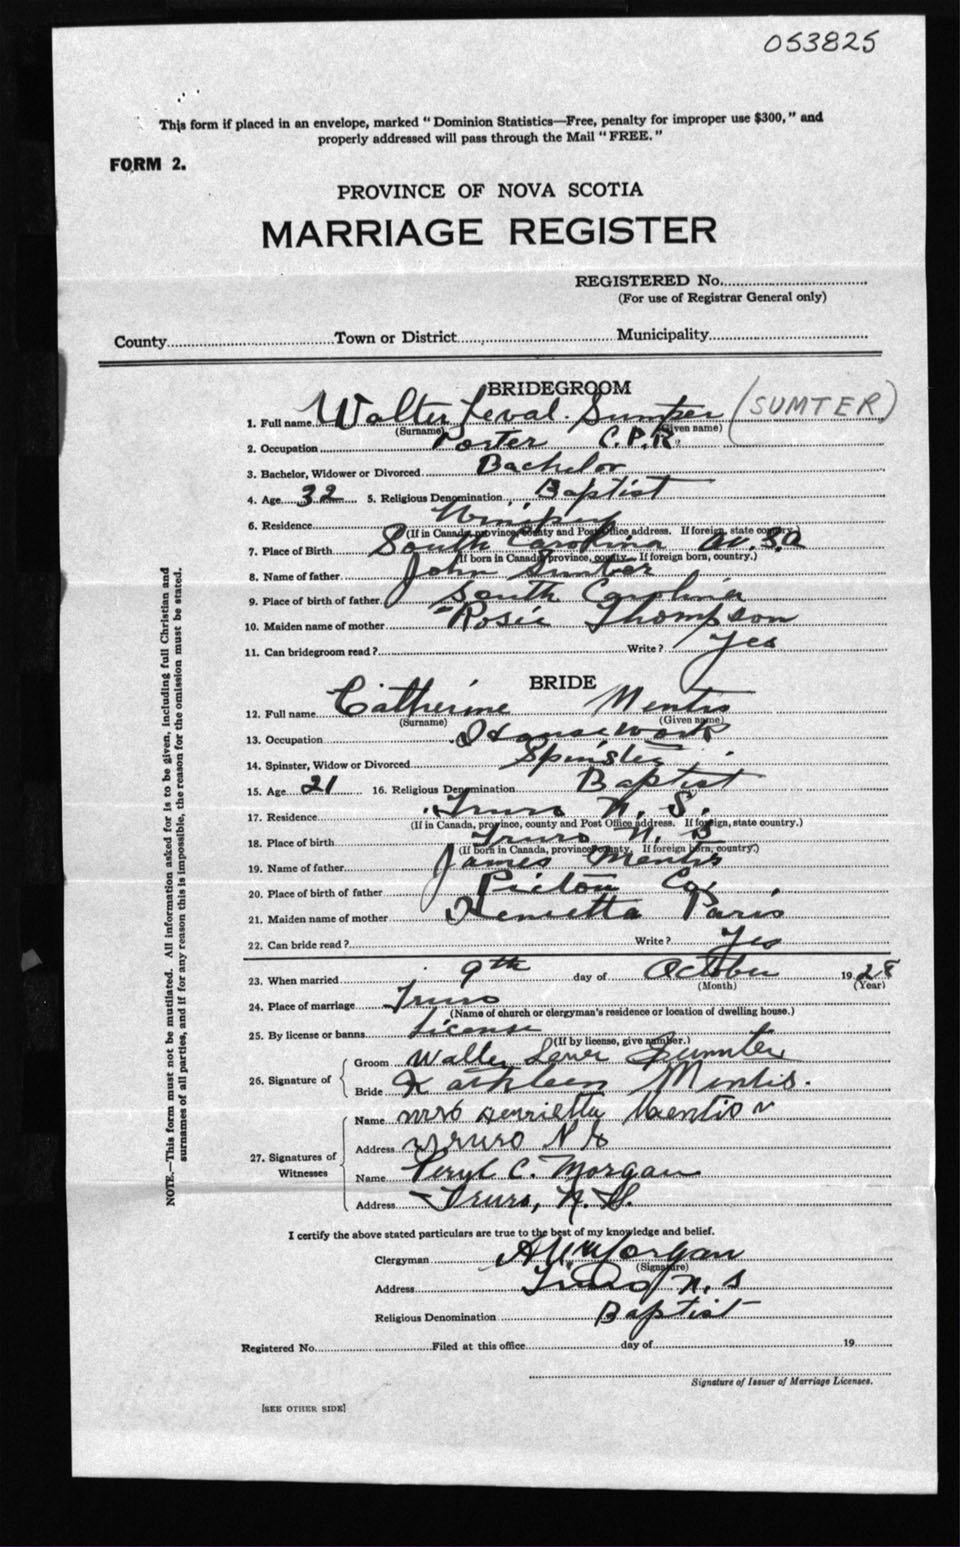 053825
This form if placed in an envelope, marked "Dominion Statistics—Free, penalty for improper use $300," and
properly addressed will pass through the Mail "FREE."
FORM 2.
PROVINCE OF NOVA SCOTIA
MARRIAGE REGISTER
REGISTERED No.
(For use of Registrar General only)
County Town or District Municipality
BRIDEGROOM
1. Full name Walter Leval Sumter (SUMTER)
(Surname) (Given name)
2. Occupation Porter C.P.R.
3. Bachelor, Widower or Divorced Bachelor
4. Age 32 5. Religious Denomination Baptist
6. Residence Winnipeg
(If in Canada, province, county and Post Office address. If foreign, state country.)
7. Place of Birth South Carolina
(If born in Canada, province, county. If foreign born, country.)
8. Name of father John Sumter
9. Place of birth of father South Carolina
10. Maiden name of mother Rosie Thompson
11. Can bridegroom read? Write? Yes
BRIDE
12. Full name Catherine Mentis
(Surname) (Given name)
13. Occupation Housework
14. Spinster, Widow or Divorced Spinster
15. Age 21 16. Religious Denomination Baptist
17. Residence Truro N. S.
(If in Canada, province, county and Post Office address. If foreign, state country.)
18. Place of birth Truro N. S
(If born in Canada, province, county. If foreign born, country.)
19. Name of father James Mentis
20. Place of birth of father Pictou Co.
21. Maiden name of mother Henrietta Paris
22. Can bride read? Write? Yes
23. When married 9th day of October 1928
(Month) (Year)
24. Place of marriage Truro
(Name of church or clergyman's residence or location of dwelling house.)
25. By license or banns License
(If by license, give number.)
26. Signature of Groom Walter Lever Sumter
Bride Kathleen Mentis.
27. Signatures of Witnesses Name Mrs Henrietta Mentis
Address Truro N S
Name Peryl C. Morgan
Address Truro, N. S.
I certify the above stated particulars are true to the best of my knowledge and belief.
Clergyman Morgan
(Signature)
Address Truro N. S
Religious Denomination Baptist
Registered No. Filed at this office day of 19
Signature of Issuer of Marriage Licenses.
[SEE OTHER SIDE]
NOTE.—This form must not be mutilated. All information asked for is to be given, including full Christian and
surnames of all parties, and if for any reason this is impossible, the reason for the omission must be stated.